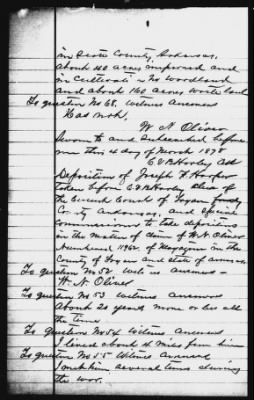 in Scott County, Arkansas,
about 40 acres improved and
in Cultivati- no woodland
and about 160 acres waste land
To question No 68, Witness answered
Has not,
W. N. Oliver
Sworn to and Subscribed before
me this 4 day of March 1878
Deposition of Joseph H Harper
taken before
the Circuit Court of Logan County
Co ty Arkansas, and Special
Commissioner to take depositions
in the Matter of Claim of W. N. Oliver
Numbered 11962 of in the
County of Logan and State of arkansas
To question No 52 Witness answered -
W. N. Oliver
To question No 53 Witness answered
About 20 years more or less all
the time
To question No 54 Witness answered
I lived about 4 miles from him
To question No 55 Witness answered
I met him several times during
the war.